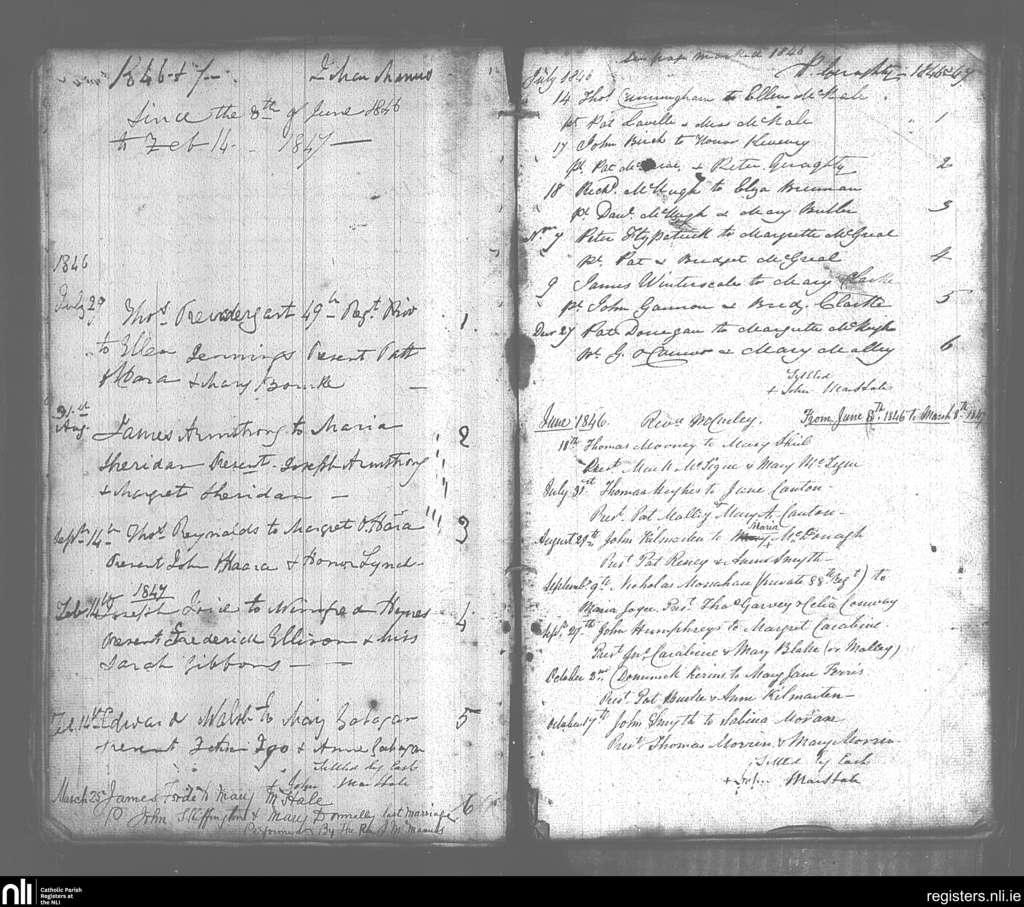 1846 & 7 - J MacManus
Since the 8th of June 1846
to Feb 14. 1847 -
1846
July 29 Thos. Prendergast 49th Regt. Priv 1
to Ellen Jennings Present Patt
OHara & Mary Bourke
31st Aug. James Armstrong to Maria 2
Sheridan Present Joseph Armstrong
& Margret Sheridan -
Septr. 14th Thos. Reynolds to Margret O.Hara 3
Present John OHara & Honor Lynch
1847
Feb 14th Joseph to Winnifred Hynes 4
Present Frederick Ellison & Miss
Sarah Gibbons -
Feb. 14th Edward Walsh to Mary Gahagan 5
Present & Anne Gahagan
Settled by Cash
John MacHale
March 25 James Forde to Mary McHale 6
P John Skiffington & Mary Donnelly last marriage
Performed By The Rev J McManus
1846
July 1846 P. Geraghty - 1846 & 47
14 Thos. Cunningham to Ellen McHale
pt. Pat Lavelle & Mrs McHale 1
17 John Birch to Honor Keveny
pt. Pat & Peter Geraghty 2
18 Richd. McHugh to Eliza Brennan
pt. Dand. McHugh & Mary Butler 3
Nr. 7 Peter Fitzpatrick to Margrette McGreal
pt. Pat & Bridget McGreal 4
9 James Winterscale to Mary Clarke
pt. John Gannon & Bridg. Clarke 5
Decr 27 Patt Donegan to Margrette McHugh
pt. J. OConnor & Mary Malley 6
Settled
+ John MacHale
June 1846. Revd. McCauley. From June 8th 1846 to March 8th 1847
18th Thomas Mooney to Mary
Prest. Mark McTigue & Mary McTigue
July 31st Thomas Hughes to Jane Canton -
Prest. Pat Malley & Mary A. Canton -
Maria
August 29th John Kilmarten to McDonagh
Prest Pat & Anne Smyth -
Septembr. 9th. Nicholas Monahan (private 88th Regt) to
Maria Joyce. Prest. Thos Garvey & Celia Conway
Sept. 27th John Humphreys to Margret Carabine.
Prest Jno. Carabine & Mary Blake (or Malley)
October 2nd. (Dominick Kerins to Mary Jane Ferris
Prest. Pat Burke & Anne Kilmarten -
October 17th John Smyth to Sabina Moran
Prest Thomas Morren & Mary Morren -
Settled by Cash
+ John MacHale
nli Catholic Parish Registers at the NLI
registers.nli.ie